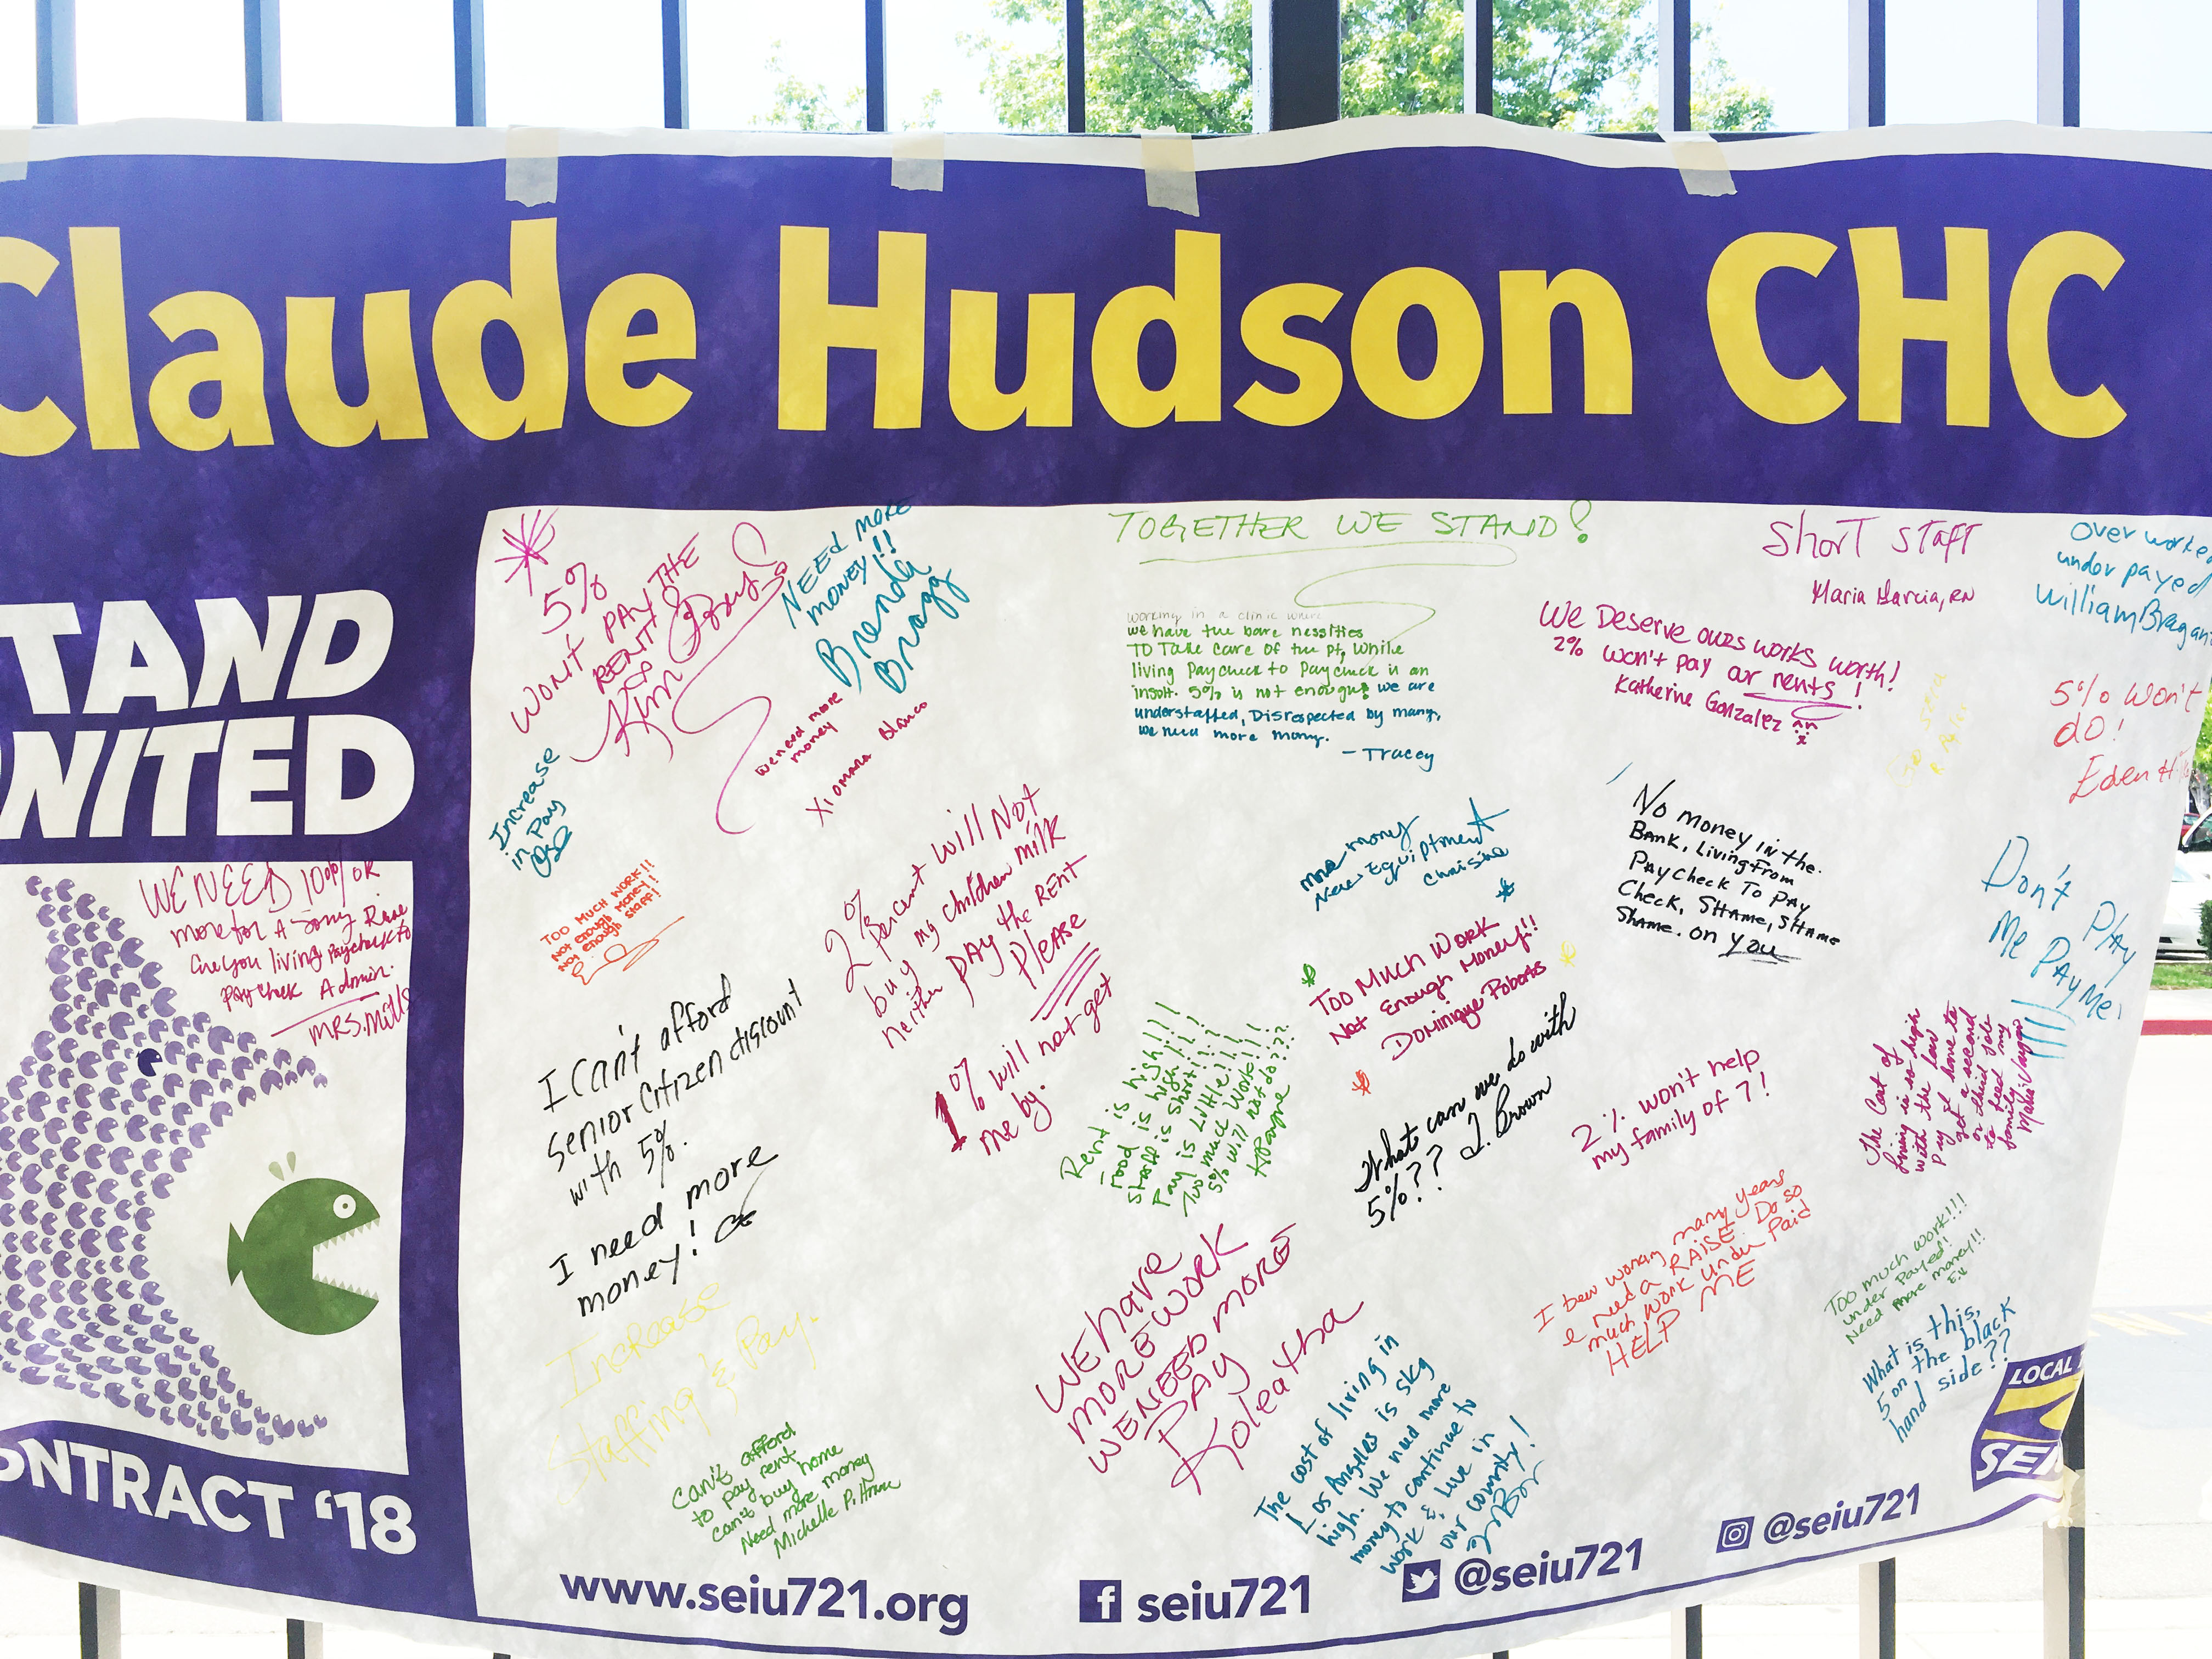 Claude Hudson CHC
TAND
NITED
WE NEED 10% OR
more for A
living Paycheck to
paycheck Admin.
MRS. Mills
ONTRACT '18
5%
WON'T PAY THE
RENT!
Kim
NEED MORE
MONEY!!
Brenda
Bragg
we need more
money
Xiomara Blanco
Increase
in
Pay
TOO MUCH WORK!!
Not enough MONEY!
Not enough
Staff!
2% percent will Not
buy my children milk
neither pay the RENT
Please
1% will not get
me by.
I can't afford
senior citizen discount
with 5%.
I need more
money!
Increase
Staffing & Pay.
Can't afford
to pay rent
can't buy home
Need more money
Michelle
TOGETHER WE STAND!
working in a clinic where
we have the bare nessities
TO Take care of the pt, while
living paycheck to paycheck is an
insult. 5% is not enough! we are
understaffed, Disrespected by many,
we need more money.
- Tracey
more money
New Equiptment
TOO MUCH WORK
Not Enough Money!!
Dominique Roberts
Rent is high!!!!
Food is high!!!
Staff is short!!
Pay is Little!!!
Too much Work!!!
5% will not do???
What can we do with
5%?? J. Brown
WE have
MORE WORK
WE NEED MORE
PAY
Koleatha
The cost of living in
Los Angeles is sky
high. We need more
money to continue to
work & live in
our community!
Short Staff
Maria Garcia, RN
We Deserve ours works worth!
2% won't pay our rents!
Katherine Gonzalez
Over worke
under payed
William Bragan
5% won't
do!
Eden
No money in the
Bank, Living From
Paycheck To Pay
Check, SHame, SHame
Shame. on you
Don't Play
Me Pay Me!
The Cost of
living is so high
with the low
pay I have to
get a second
or third job
to feed my
family
2% won't help
my family of 7!
I been working many years
I need a RAISE. Do so
much work under Paid
HELP ME
Too much work!!!
under Payed!
Need more money!!
What is this,
5 on the black
hand side??
LOCAL
SEI
www.seiu721.org
seiu721
@seiu721
@seiu721